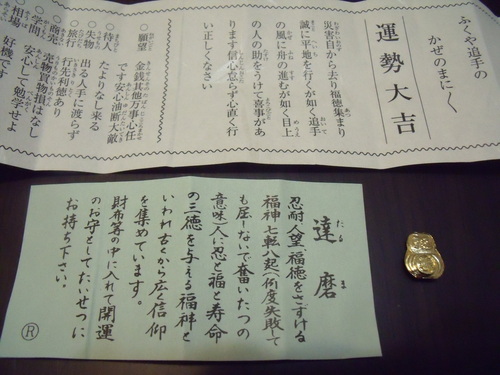 ふくや追手の
かぜのまに〱
運勢大吉
災害自から去り福徳集まり
誠に平地を行くが如く追手
の風に舟の進むが如く目上
の人の助をうけて喜事があ
ります信心怠らず心直く行
い正しくなさい
○願望 金銭其他万事心任
です安心油断大敵
○待人 たよりなし来る
○失物 出る人手に渡らず
○旅行 行先利徳あり
○商売 売物買物損はなし
○学問 安心して勉学せよ
○相場 好機です
達磨
だるま
忍耐人望、福徳をさずける
福神 七転八起(何度失敗して
も屈しないで奮いたつの
意味)人に忍と福と寿命
の三徳を与える福神と
いわれ古くから広く信仰
を集めています。
財布等の中に入れて開運
のお守としてたいせつに
お持ち下さい。
Ⓡ